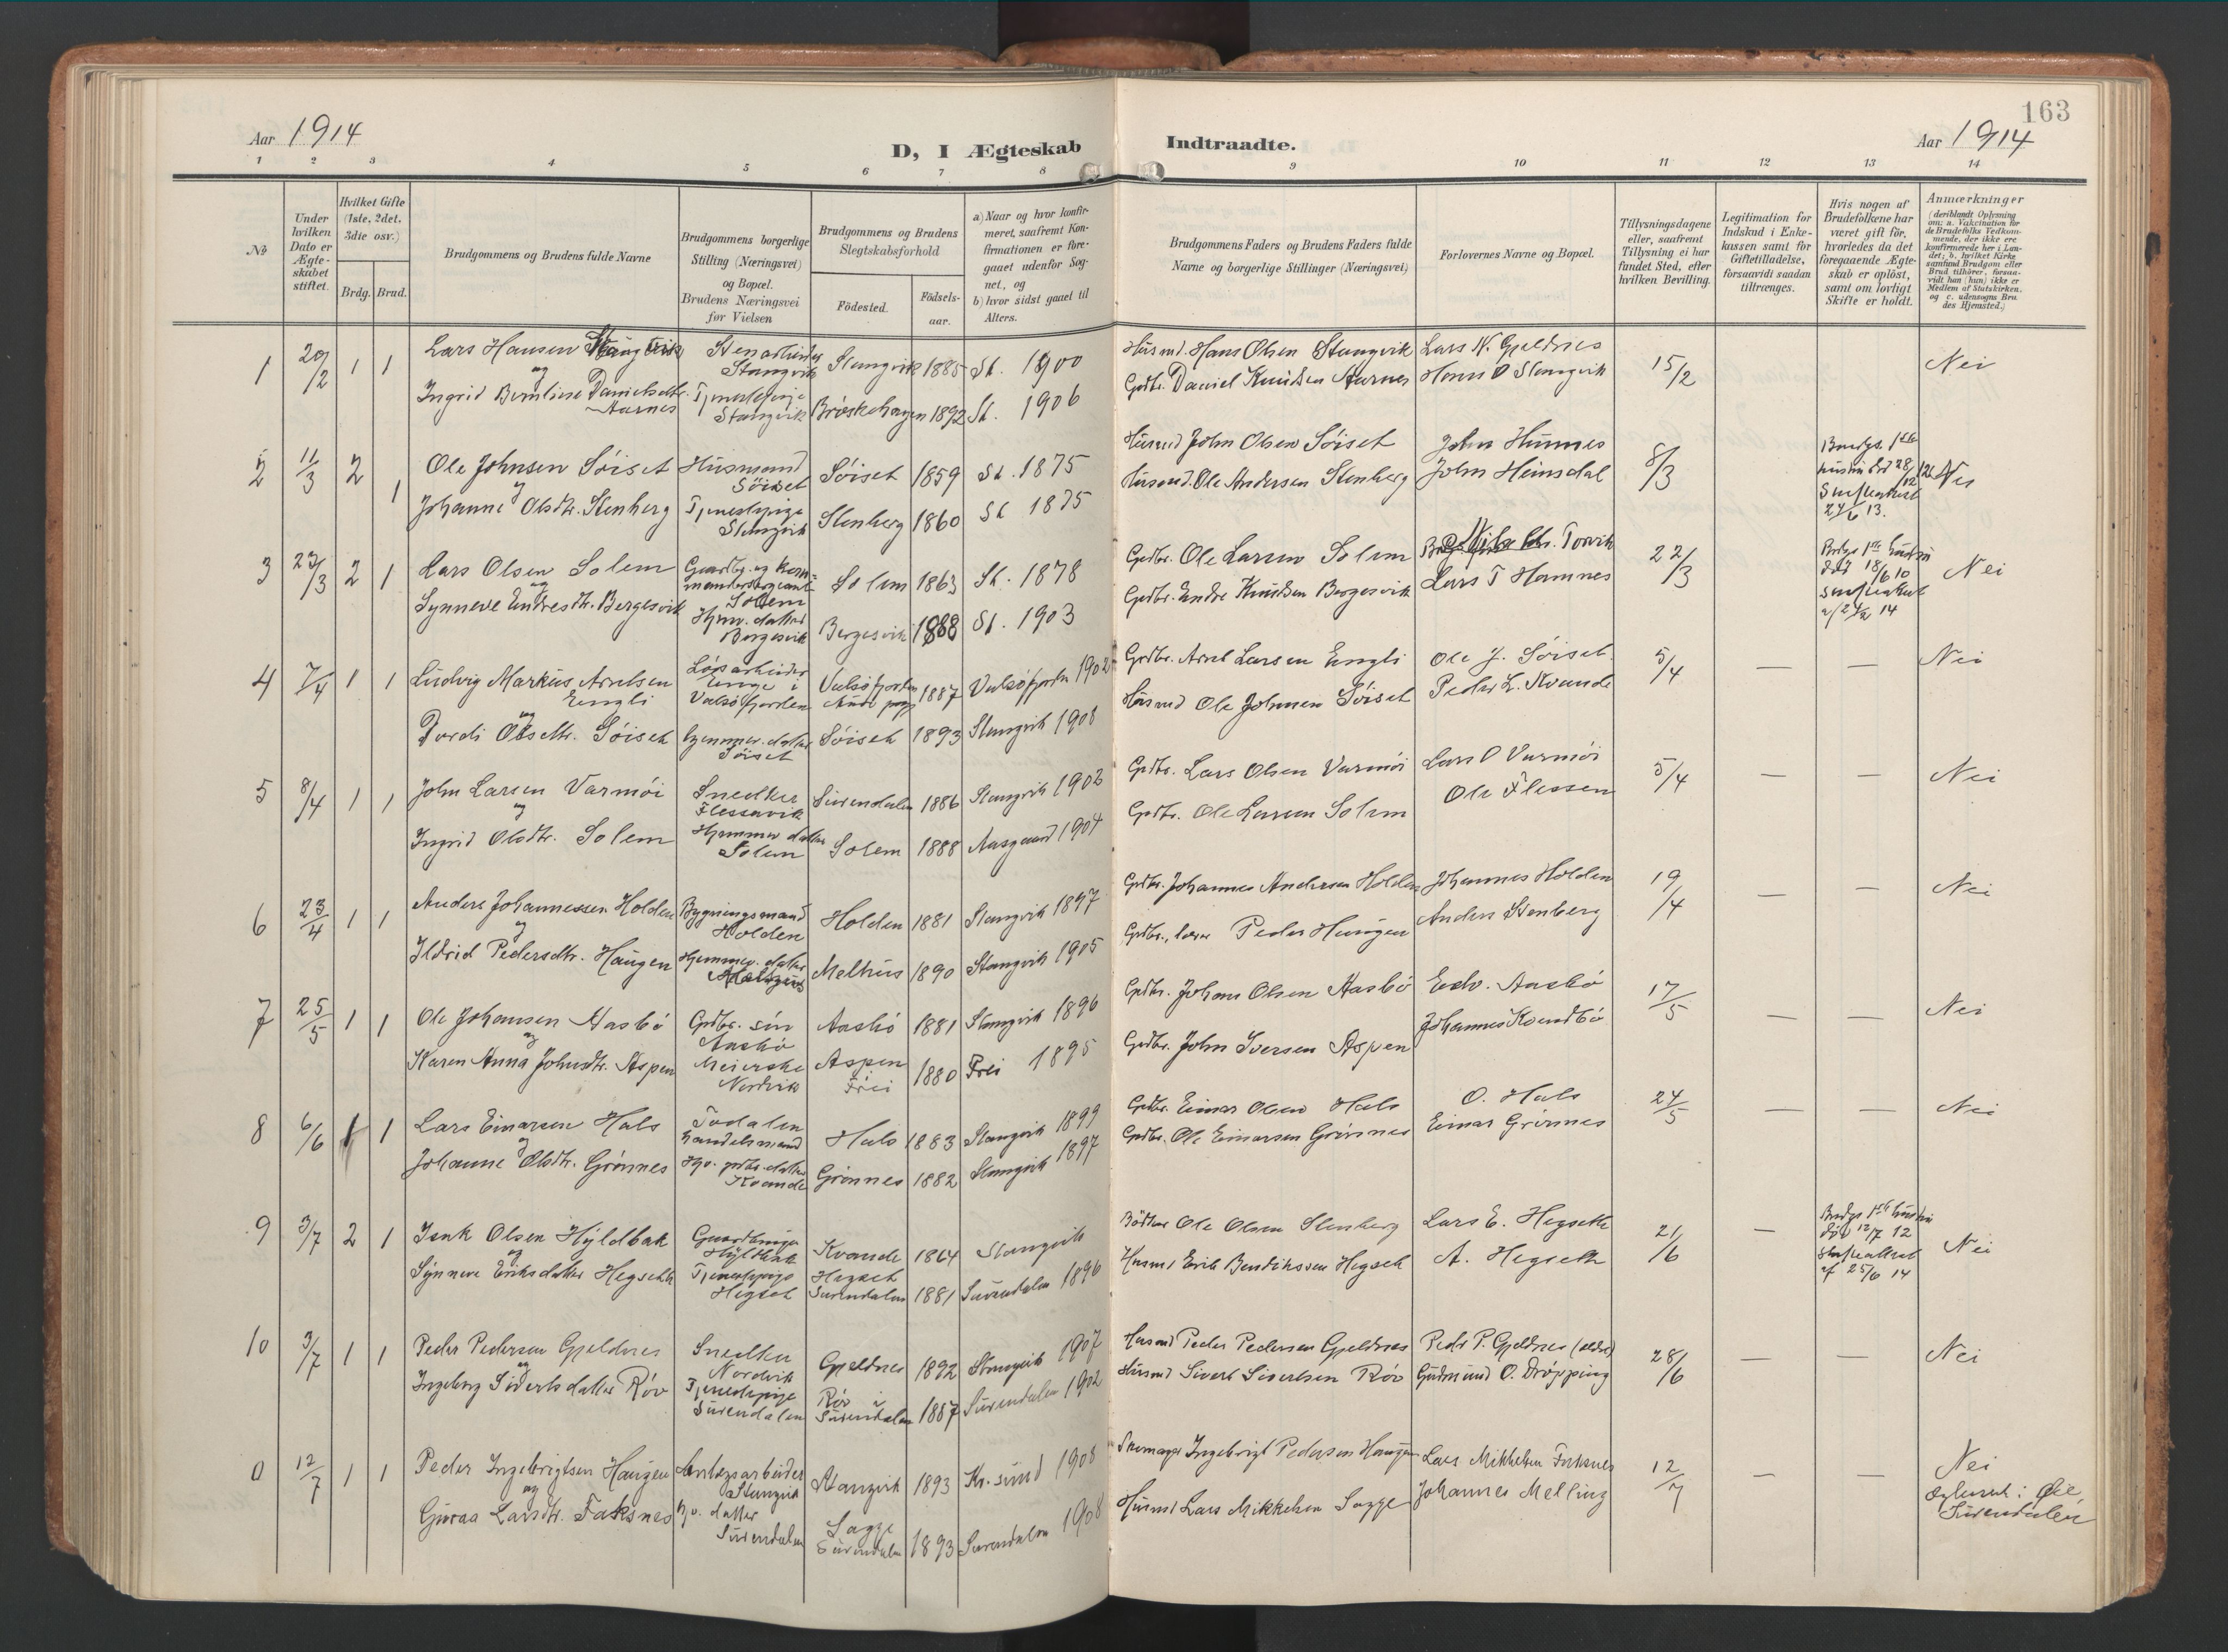 163
Aar 1914
D, I Ægteskab Indtraadte.
Aar 1914
1 2 3 4 5 6 7 8 9 10 11 12 13 14
No
Under hvilken Dato er Ægteskabet stiftet.
Hvilket Gifte (1ste, 2det, 3die osv.)
Brdg. Brud.
Brudgommens og Brudens fulde Navne
Brudgommens borgerlige Stilling (Næringsvei) og Bopæl. Brudens Næringsvei før Vielsen
Brudgommens og Brudens Slegtskabsforhold
Födested. Födsels-aar.
a) Naar og hvor konfirmeret, saafremt Konfirmationen er foregaaet udenfor Sognet, og
b) hvor sidst gaaet til Alters.
Brudgommens Faders og Brudens Faders fulde Navne og borgerlige Stillinger (Næringsvei)
Forlovernes Navne og Bopæl.
Tillysningsdagene eller, saafremt Tillysning ei har fundet Sted, efter hvilken Bevilling.
Legitimation for Indskud i Enkekassen samt for Giftetilladelse, forsaavidt saadan tiltrænges.
Hvis nogen af Brudefolkene har været gift för, hvorledes da det foregaaende Ægteskab er oplöst, samt om lovligt Skifte er holdt.
Anmærkninger
(deriblandt Oplysning om: a. Vakcination for de Brudefolks Vedkommende, der ikke ere konfirmerede her i Landet; b. hvilket Kirkesamfund Brudgom eller Brud tilhörer, forsaavidt han (hun) ikke er Medlem af Statskirken. og c. udensogns Brudes Hjemsted.)
1 20/2 1 1 Lars Hansen Stangvik Stenarbeider Stangvik Stangvik 1885 St. 1900 Husmd. Hans Olsen Stangvik Lars N. Gjeldnes 15/2 Nei
og
Ingrid Danielsdtr. Aarnes Tjenestepige Stangvik Brøskehaugen 1892 St. 1906 Grdbr. Daniel Knudsen Aarnes Hans O Stangvik
2 11/3 2 1 Ole Johnsen Söiset Husmand Söiset Söiset 1859 St. 1875 Husmd John Olsen Söiset John Hamnes 8/3 Brudgs. 1ste hustru död 28/12 12 Skifteattest 24/6 13. Nei
og
Johanne Olsdtr. Stenberg Tjenestepige Stangvik Stenberg 1860 St 1875 Husmd. Ole Andersen Stenberg John Heimsdal
3 23/3 2 1 Lars Olsen Solem Gaardbr. og Solem Solem 1863 St. 1878 Grdbr. Ole Larsen Solem Nils Torvik 22/3 Brdgs 1ste hustru död 18/6 10 Skifteattest 14 Nei
og
Synneve Endresdtr. Bergesvik Hjmv. datter Bergesvik Bergesvik 1888 St. 1903 Grdbr. Endre Knudsen Bergesvik Lars T Hamnes
4 7/4 1 1 Ludvig Markus Arntsen Engli Løsarbeider Enge i Valsöfjorden Valsöfjorden 1887 Valsöfjorden 1902 Grdbr. Arnt Larsen Engli Ole J. Söiset 5/4 — — Nei
og
Dordi Olsdtr. Söiset hjemmev. datter Söiset Söiset 1893 Stangvik 1908 Husmd Ole Johnsen Söiset Peder L. Kvande
5 8/4 1 1 John Larsen Varmöi Snedker Flessavik Surendalen 1886 Stangvik 1902 Grdbr. Lars Olsen Varmöi Lars O Varmöi 5/4 — — Nei
og
Ingrid Olsdtr. Solem Hjemmev datter Solem Solem 1888 Aasgaard 1904 Grdbr. Ole Larsen Solem Ole Flessen
6 23/4 1 1 Anders Johannessen Holden Bygningsmand Holden Holden 1881 Stangvik 1897 Grdbr. Johannes Andersen Holden Johannes Holden 19/4 — — Nei
og
Ildrid Pedersdtr. Haugen Hjemmev. datter Melhus 1890 Stangvik 1905 Grdbr., lærer Peder Haugen Anders Stenberg
7 25/5 1 1 Ole Johansen Aasbö Grdbr. sön Aasbö Aasbö 1881 Stangvik 1896 Grdbr. Johans Olsen Aasbö Edv. Aasbö 17/5 — — Nei
og
Karen Anna Johnsdtr. Aspen Meierske Nordvik Aspen Frei 1880 Frei 1895 Grdbr. John Iversen Aspen Johannes Kvendbö
8 6/6 1 1 Lars Einarsen Hals Todalen handelsmand Hals 1883 Stangvik 1899 Grdbr. Einar Olsen Hals O. Hals 24/5 — — Nei
og
Johanne Olsdtr. Grönnes Hjv. grdbr. datter Kvande Grönnes 1882 Stangvik 1897 Grdbr. Ole Einarsen Grönnes Einar Grönnes
9 3/7 2 1 Isak Olsen Hyldbak Gaardbruger Hyldbak Kvande 1864 Stangvik Bödker Ole Olsen Stenberg Lars E. Hegseth 21/6 — Brudgs 1ste hustru död 12/7 12 Skifteattest af 25/6 14 Nei
og
Synneve Eriksdatter Hegseth Tjenestepige Hegset Hegset Surendalen 1881 Surendalen 1896 Husmd Erik Bendikssen Hegset A. Hegseth
10 3/7 1 1 Peder Pedersen Gjeldnes Snedker Nordvik Gjeldnes 1892 Stangvik 1907 Husmd Peder Pedersen Gjeldnes Peder P. Gjeldnes (eldre) 28/6 — — Nei
og
Ingeborg Sivertsdatter Röv Tjenestepige Surendalen Röv i Surendalen 1887 Surendalen 1902 Husmd Sivert Sivertsen Röv Gudmund O. Dröpping
0 12/7 1 1 Peder Ingebrigtsen Haugen Anlægsarbeider Stangvik Stangvik 1893 Kr.sund 1908 Skomager Ingebrigt Pedersen Haugen Lars Mikkelsen Faksnes 12/7 — — Nei
og
Guraa Larsdtr. Faksnes hjv. datter Surendalen Sagge Surendalen 1893 Surendalen 1908 Husmd Lars Mikkelsen Sagge Johannes Melling Surendalen